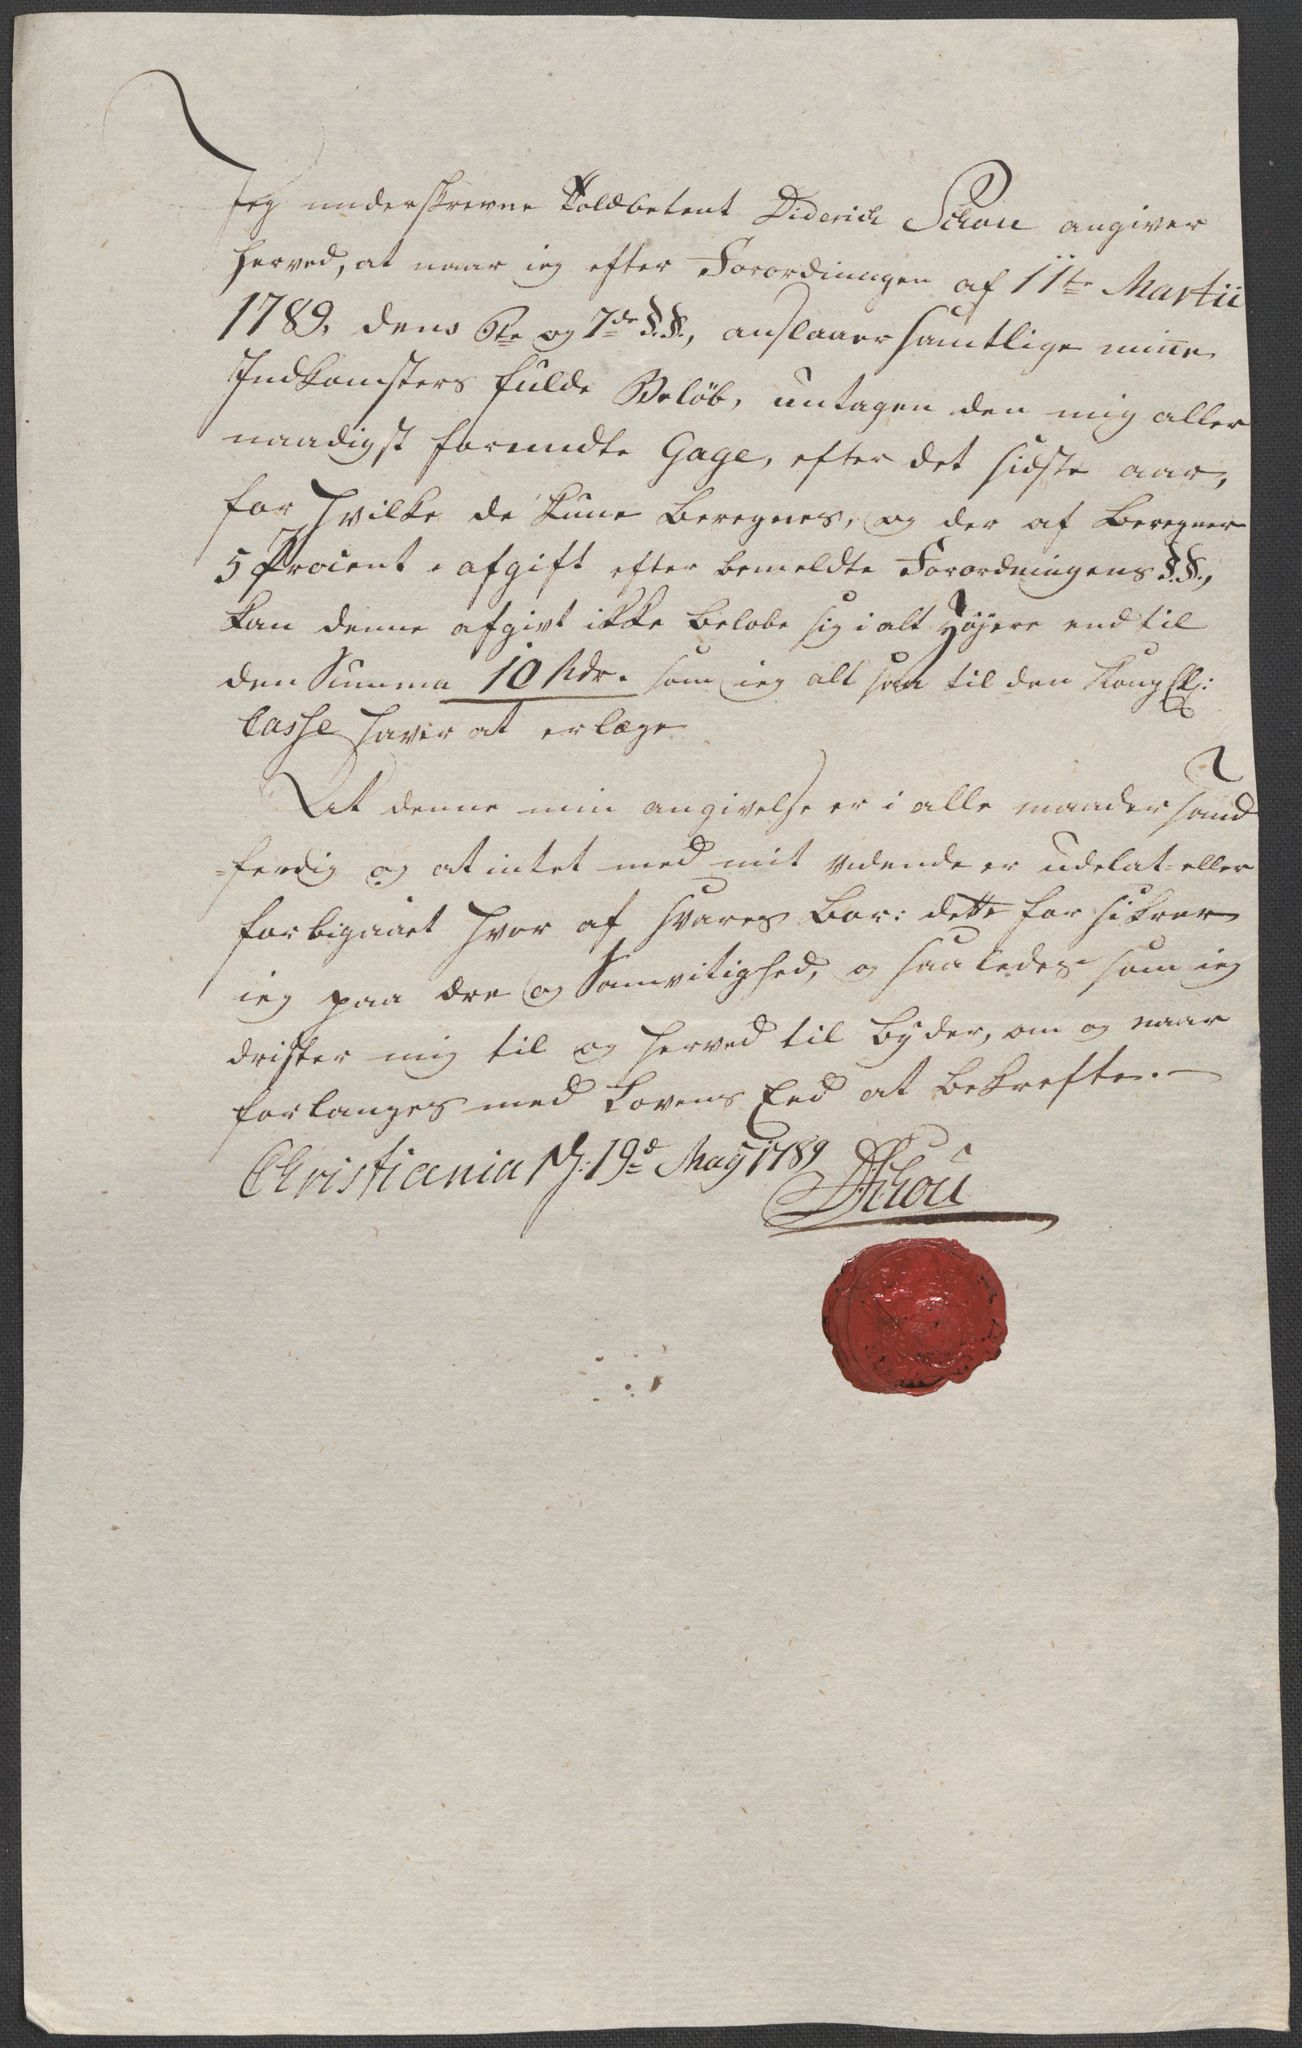 Jeg underskrevne Toldbetient Diderich Schou angiver
herved, at naar ieg efter Forordningen af 11te Martii
1789, dens 6te og 7de §.§., anslaaer samtlige mine
Indkomsters fulde Beløb, untagen den mig aller
naadigst forundte Gage, efter det sidste aar,
for hvilke de kune beregnes, og der af beregner
5 Procent afgift efter bemeldte Forordningens §.§.,
kan denne afgivt ikke beløbe sig i alt høyere end til
den Summa 10 Rdr. som ieg alt saa til den Kongl:
Casse haver at erlæge
At denne min angivelse er i alle maader sand
=ferdig og at intet med mit vidende er udelat eller
forbigaaet hvor af svares bør: dette for sikrer
ieg paa ære og Samvitighed, og saaledes som ieg
drister mig til og herved til byder, om og naar
forlanges med Lovens Eed at bekrefte. —
Christiania d: 19d May 1789
DSchou